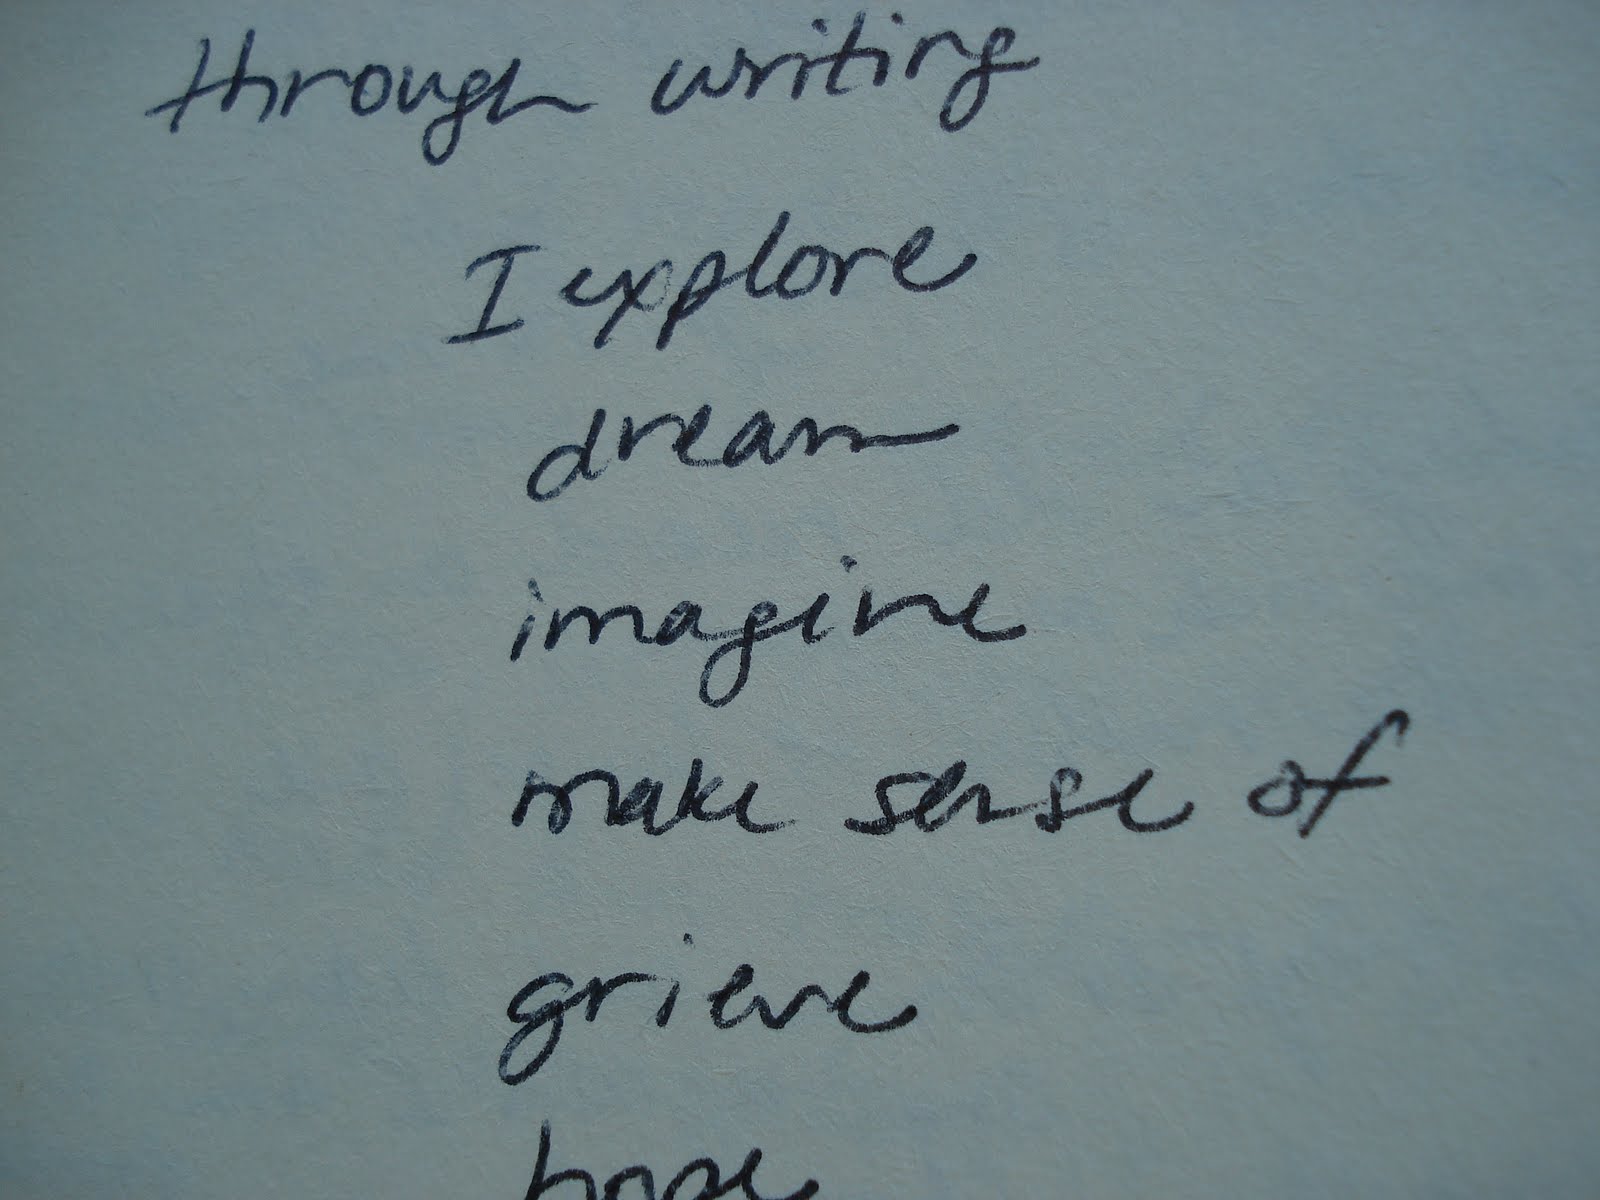 through writing
I explore
dream
imagine
make sense of
grieve
hope